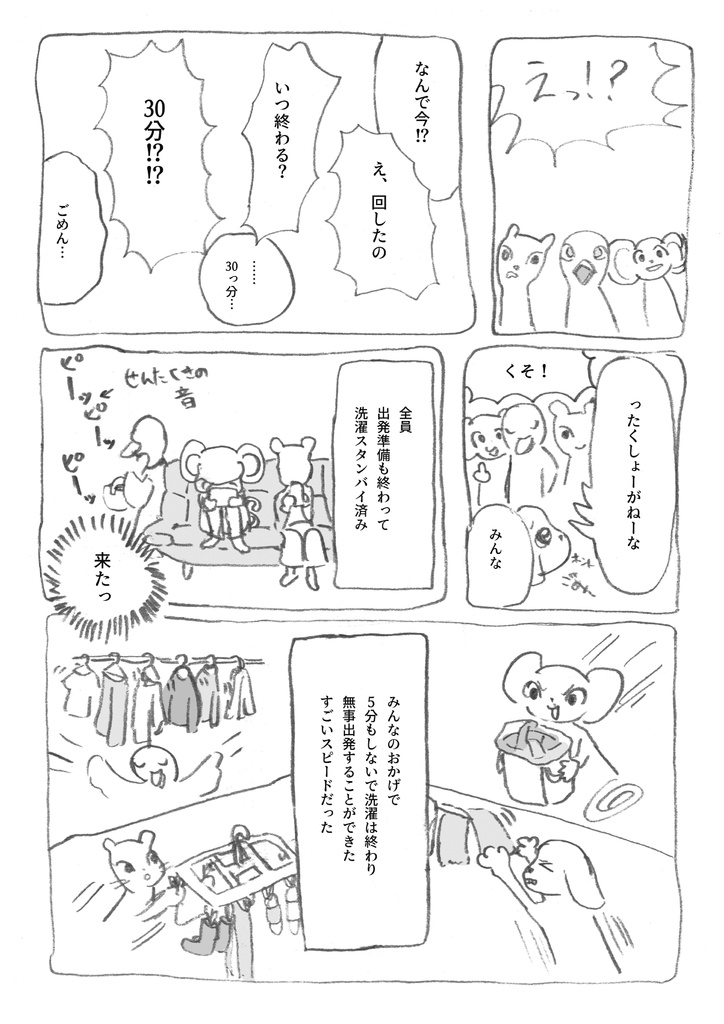 えっ!?
なんで今!?
え、回したの
いつ終わる?
……
30っ分…
30分!?!?
ごめん…
ったくしょーがねーな
くそ!
みんな
ホント
ごめん
全員
出発準備も終わって
洗濯スタンバイ済み
せんたくきの
音
ピーッ
ピーッ
ピーッ
来たっ
みんなのおかげで
5分もしないで洗濯は終わり
無事出発することができた
すごいスピードだった